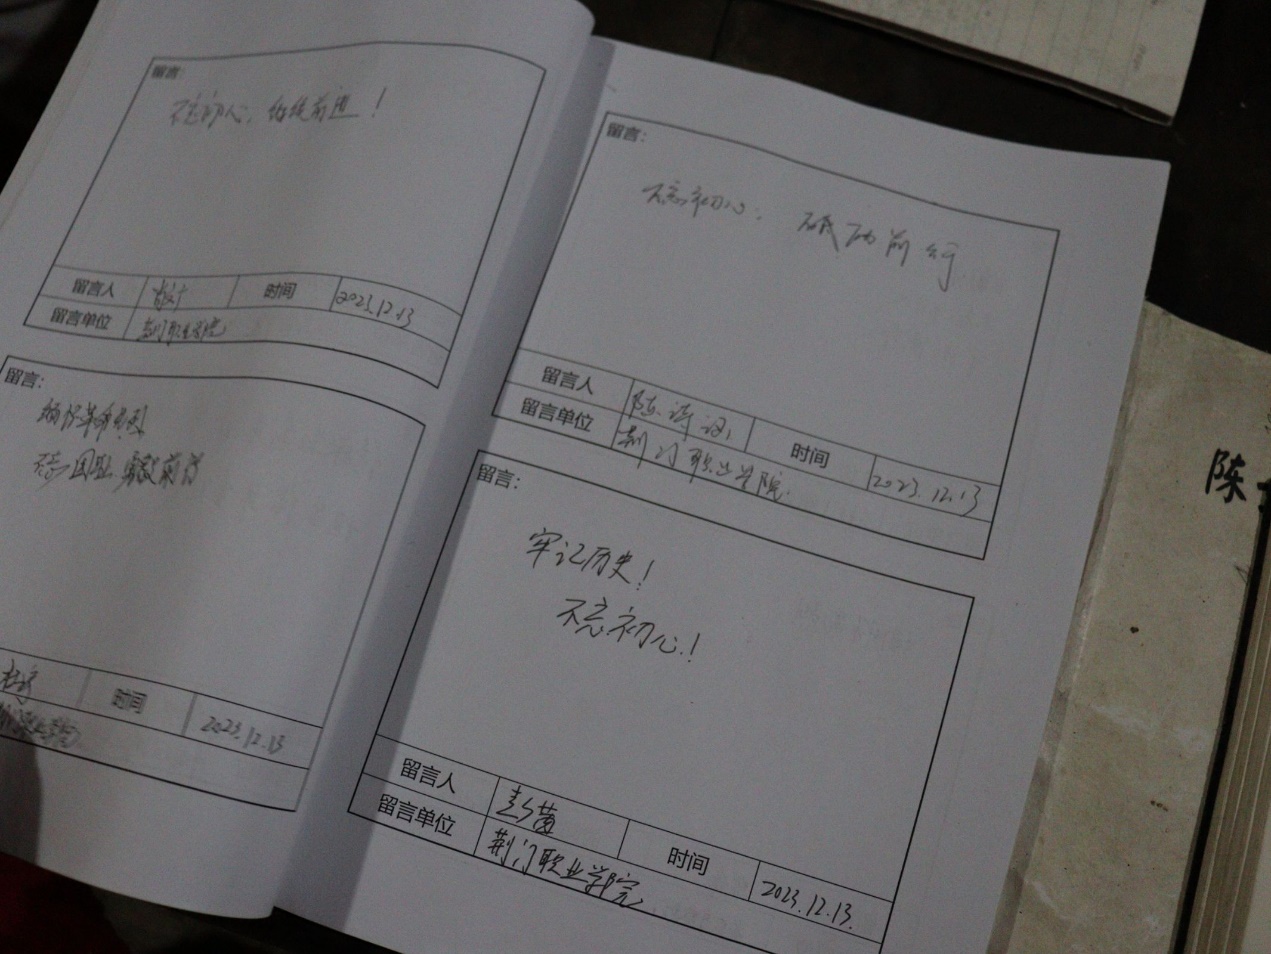 留言:
不忘初心,继续前进!
留言人 时间 2023.12.13
留言单位 荆门职业学院
留言:
缅怀革命先烈
不忘国耻 勇敢前行
时间 2023.12.13
留言:
不忘初心, 砥砺前行.
留言人 陈 时间 2023.12.13
留言单位 荆门职业学院.
留言:
牢记历史!
不忘初心!
留言人 时间 2023.12.13.
留言单位 荆门职业学院
陈